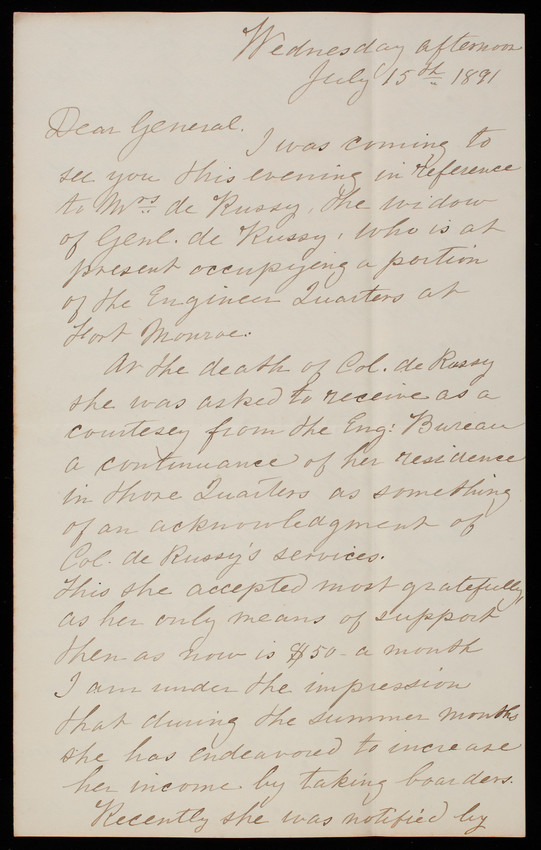 Wednesday afternoon
July 15th 1891
Dear General.
I was coming to
see you this evening in reference
to Mrs. de Russy, the widow
of Genl. de Russy, who is at
present occupying a portion
of the Engineer Quarters at
Fort Monroe.
At the death of Col. de Russy
she was asked to receive as a
courtesey from the Eng: Bureau
a continuance of her residence
in those Quarters as something
of an acknowledgment of
Col. de Russy's services.
This she accepted most gratefully
as her only means of support
then as now is $50 a month
I am under the impression
that during the summer months
she has endeavored to increase
her income by taking boarders.
Recently she was notified by